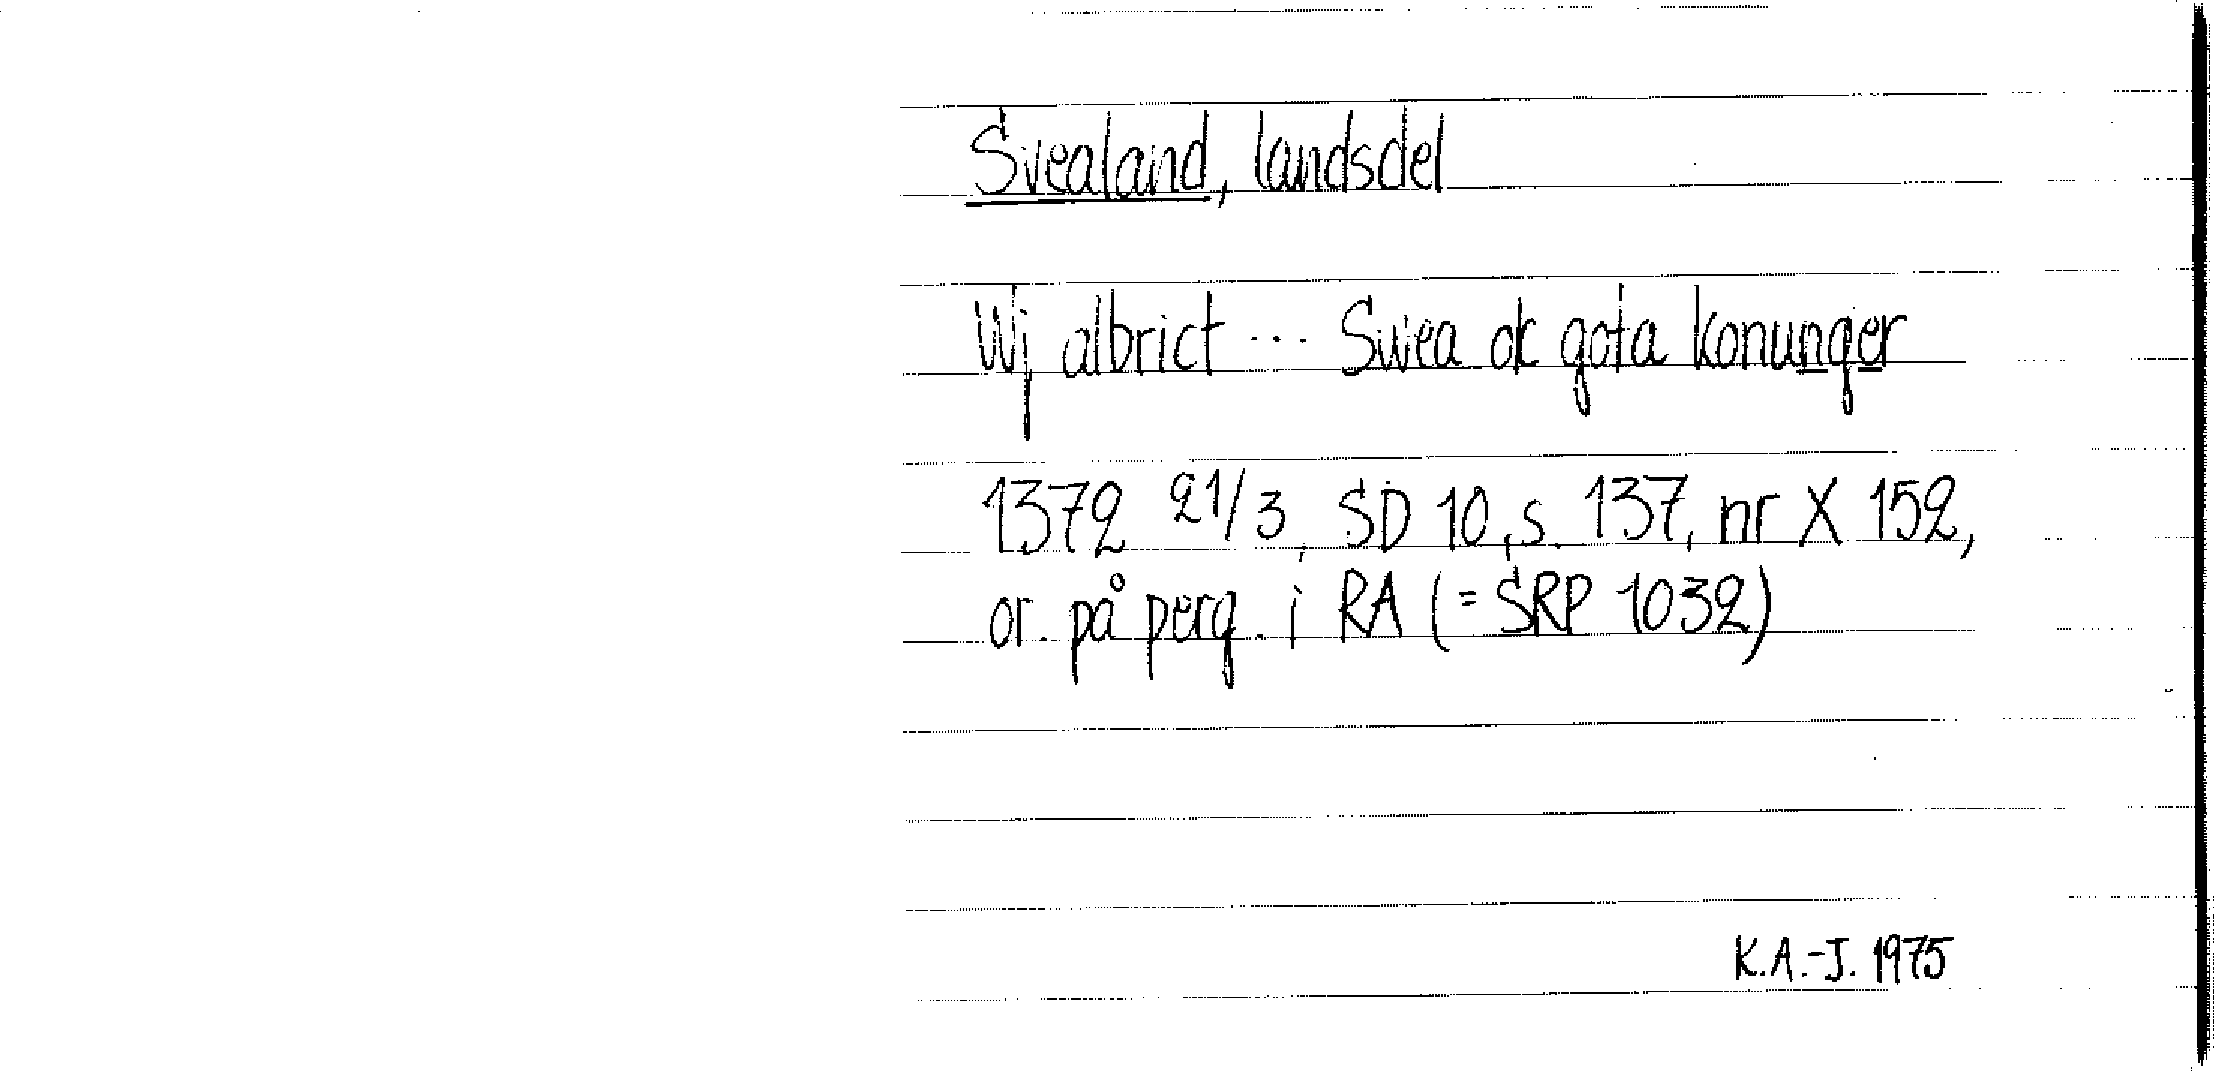 Svealand, landsdel
Wj albrict ... Swea ok gota konunger
1372 21/3, SD 10, s. 137, nr X 152,
or. på perg. i RA (= SRP 1032)
K.A.-J. 1975